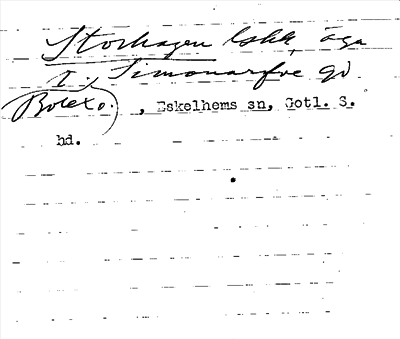 Storhagen lskr, äga
I i Simonarfve gd
Botexo. , Eskelhems sn, Gotl. S.
hd.